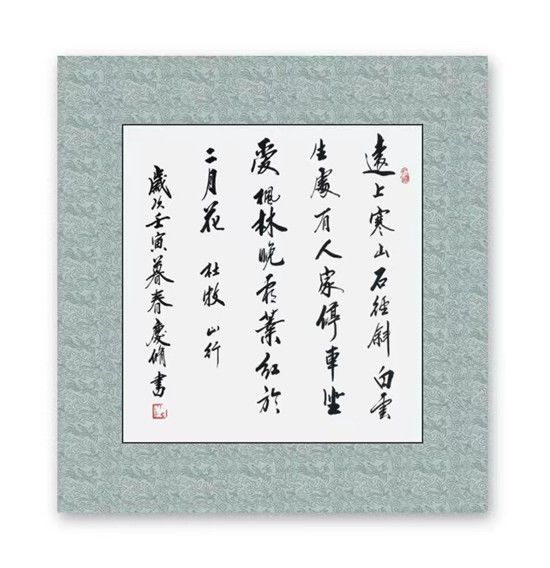 遠上寒山石徑斜白雲
生處有人家停車坐
愛楓林晚霜葉紅於
二月花 杜牧 山行
歲次壬寅暮春慶脩書